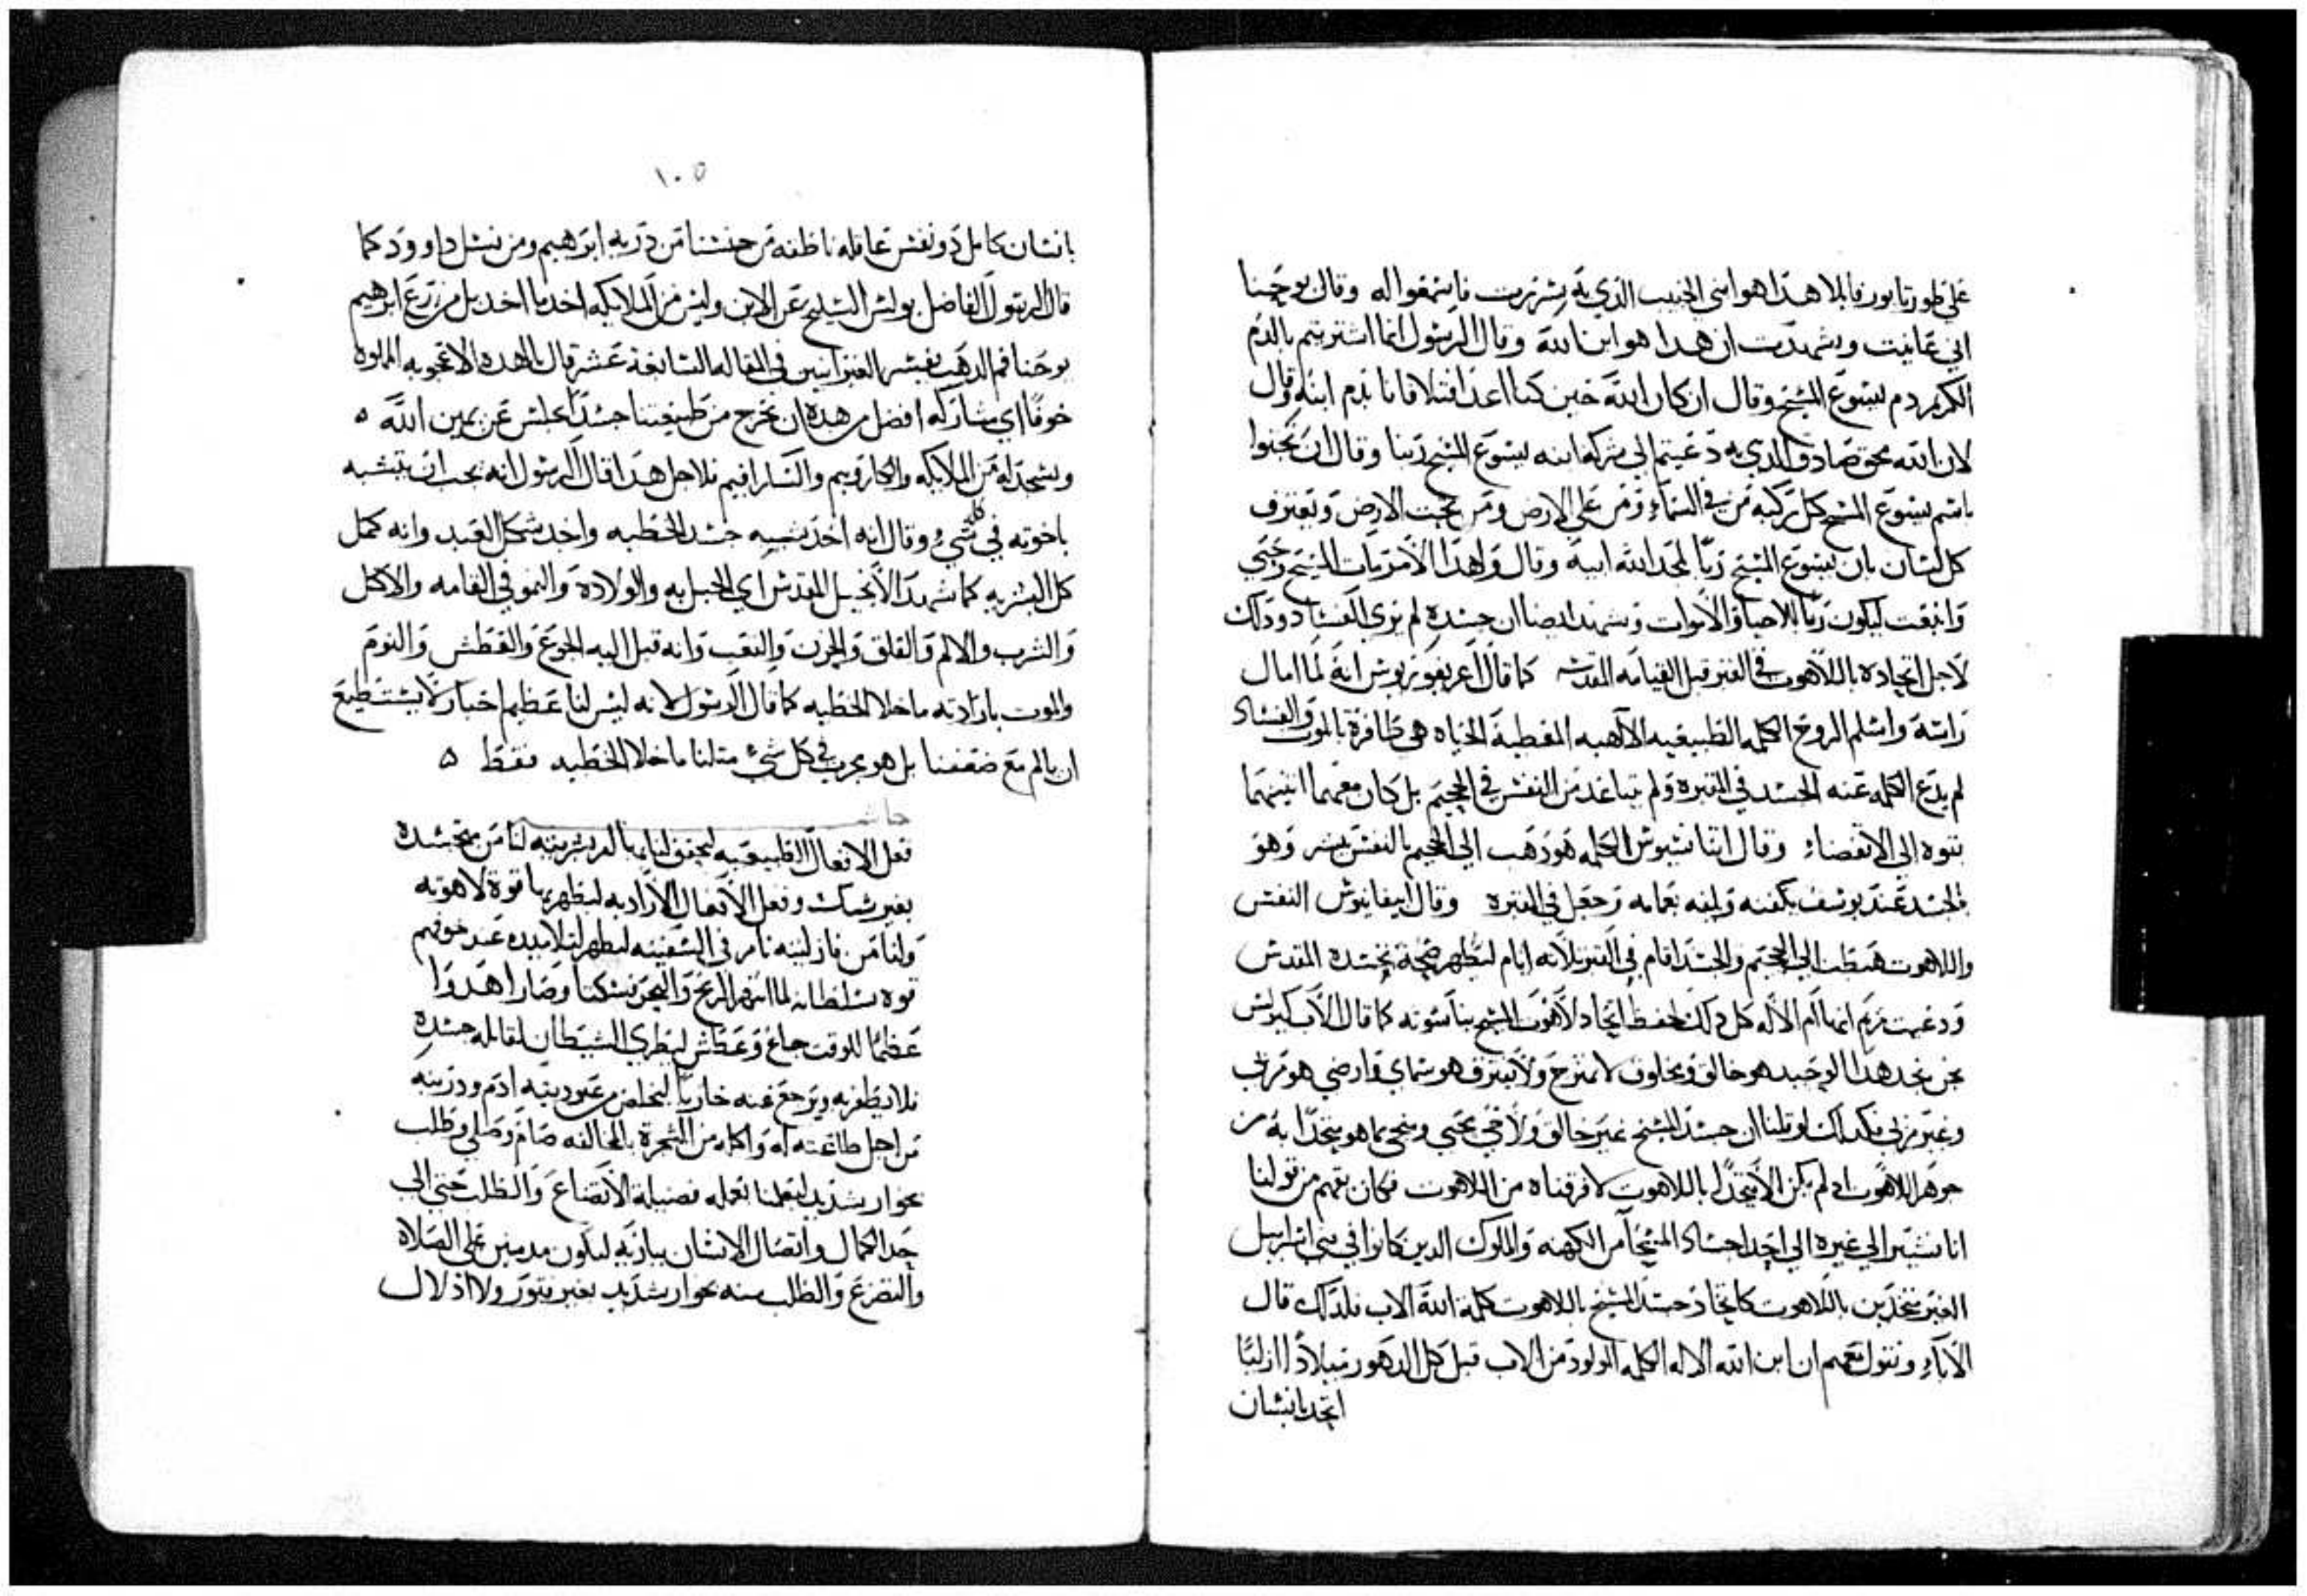 على طور تابور قايلا هدا هو ابني الحبيب الدي به سررت فاسمعوا له وقال يوحنا
اني عاينت وشهدت ان هدا هو ابن الله وقال الرسول انما اشتريتم بالدم
الكريم دم يسوع المسيح وقال ان كان الله حين كنا اعدا قبلا فانا بدم ابنه وقال
لان الله محق صادق الدي به دعيتم الى شركة ابنه يسوع المسيح ربنا وقال ان تجثوا
باسم يسوع المسيح كل ركبه من في السماء ومن على الارض ومن تحت الارض ويعترف
كل لسان بان يسوع المسيح ربا لمجد الله ابيه وقال ولهدا الامر مات المسيح وحيي
وانبعت ليكون ربا للاحيا والاموات ونشهد ايضا ان جسده لم يرى الفساد ودلك
لاجل اتحاده باللاهوت في القبر قبل القيامه المقدسه كما قال اغريغوريوس انه لما امال
راسه واسلم الروح الكلمه الطبيعيه الالاهيه المعطية الحياه هي ظافرة بالموت والفساد
لم يدع الكلمه عنه الجسد في المقبره ولم تباعد من النفس في الجحيم بل كان معهما اتنينهما
بقوه الى الانقضاء وقال اتناسيوس الكلمه هو دهب الى الجحيم بالنفس وهو
بالجسد عند يوسف بكفنه ويلفه بعمامه وجعل في المقبره وقال ابيفانيوس النفس
واللاهوت هبطت الى الجحيم والجسد اقام في القبر تلاته ايام ليظهر صحة تجسده المقدس
ودعيت مريم انها ام الاله كل دلك لحفظ اتحاد لاهوت المسيح بناسوته كما قال الاب كيرلس
نحن نجد هدا الوحيد هو خالق ومخلوق لا يمتزج ولا يفترق هو سماي وارضي هو مرئي
وغير مرئي فكدلك لو قلنا ان جسد المسيح غير خالق ولا محيي ومنجي بما هو متحدا به من
جوهر اللاهوت اد لم يكن الا متحدا باللاهوت لافرقناه من اللاهوت فكان يفهم من قولنا
انا نشير الى غيره الى احد اجساد المسحا من الكهنه والملوك الدين كانوا في بني اسراييل
الغير متحدين باللاهوت كاتحاد جسد المسيح باللاهوت كلمة الله الاب فلدلك قال
الآباء ونقول معهم ان ابن الله الاله الكلمه المولود من الاب قبل كل الدهور ميلادا ازليا
اتحد بانسان
١٠٥
بانسان كامل دو نفس عاقله ناطقه من جنسنا من درية ابرهيم ومن نسل داوود كما
قال الرسول الفاضل بولس السليح عن الابن وليس من الملايكه اخد ما اخد بل من زرع ابرهيم
يوحنا فم الدهب يفسر العبرانيين في المقاله السابعة عشر قال يالهده الاعجوبه المملوه
خوفا اي مشاركه افضل من هده ان يخرج من طبيعتنا جسدا جلس عن يمين الله ٥
ويسجد له من الملايكه والكاروبيم والسارافيم فلاجل هدا قال الرسول انه يجب ان يتشبه
باخوته في كل شيء وقال انه اخد شبه جسد الخطيه واخد شكل العبد وانه كمل
كل البشريه كما شهد الانجيل المقدس اي الحبل به والولادة والنمو في القامه والاكل
والشرب والالم والقلق والحزن والتعب وانه قبل اليه الجوع والعطش والنوم
والموت بارادته ما خلا الخطيه كما قال الرسول لانه ليس لنا عظيم احبار لا يستطيع
ان يالم مع ضعفنا بل هو مجرب في كل شيء متلنا ما خلا الخطيه فقط ٥
حاشيه
فعل الافعال الطبيعيه ليحقق لنا بها انه بشريته لنا من تجسده
بغير شك وفعل الافعال الاراديه ليظهر بها قوة لاهوته
ولنا من قاز لبيه نام في السفينه ليظهر لتلاميده عند خوفهم
قوه سلطانه لما انتهر الريح والبحر فسكنا وصارا هدوا
عظيما للوقت جاع وعطش ليطري الشيطان لمقابلة جسده
فلا يظفر به ويرجع عنه خازيا ليخلص من عبوديته ادم ودريته
من اجل طاعته له واكله من الشجرة بالمخالفه صام وصلى وطلب
بجوار شديد ليعلمنا بعمله فضيلة الاتضاع والطلب حتى الى
حد الكمال واتصال الانسان بباريه ليكون مدمنين على الصلاة
والتضرع والطلب منه بجوار شديد بغير فتور ولا ادلال